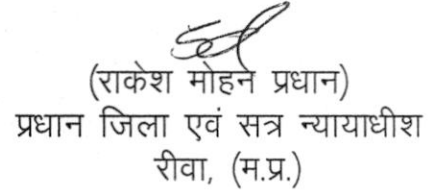 (राकेश मोहन प्रधान)
प्रधान जिला एवं सत्र न्यायाधीश
रीवा, (म.प्र.)